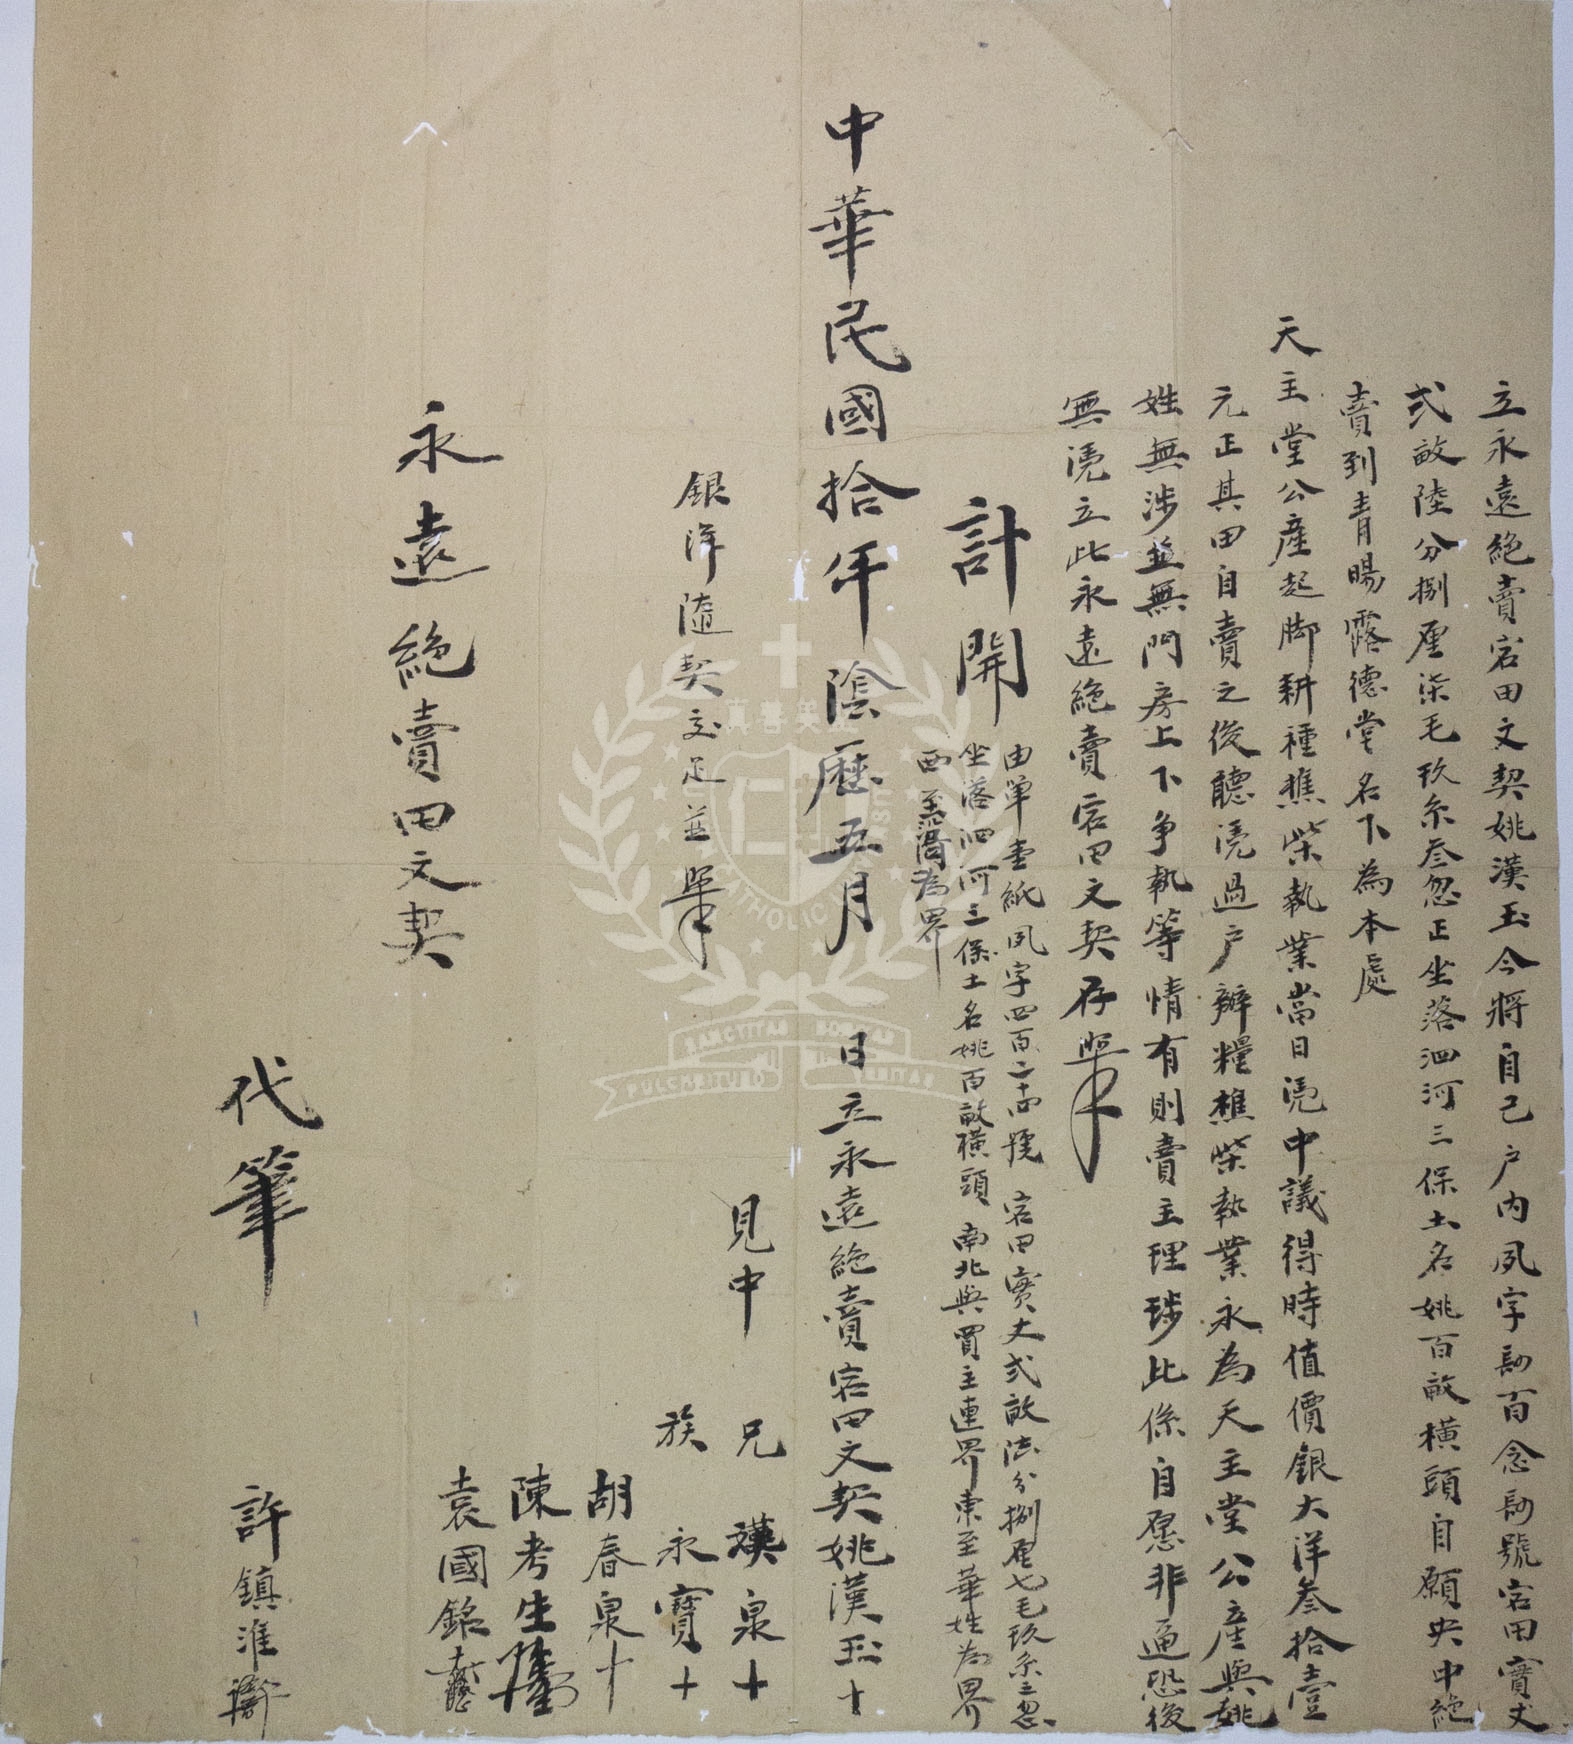 立永遠絕賣宕田文契姚漢玉今將自己户內夙字勀百念勀號宕田實丈
弍畝陸分捌厘柒毛玖糸叁忽正坐落泗河三保土名姚百畝橫頭自願央中絕
賣到青暘露德堂名下為本處
天主堂公產起脚耕種樵柴執業當日凴中議得時值價銀大洋叁拾壹
元正其田自賣之後聽凴過户辦糧樵柴執業永為天主堂公產與姚
姓無涉並無門房上下争執等情有則賣主理涉此係自愿非逼恐後
無凴立此永遠絕賣宕田文契存照
計開
由單壹紙夙字四百二十四號 宕田實丈弍畝陆分捌厘七毛玖糸三忽
坐落泗河三保土名姚百畝橫頭 南北與買主連界東至華姓為界
西至為界
中華民國拾年陰歷五月 日立永遠絕賣宕田文契姚漢玉十
見中 兄 漢泉十
銀洋隨契交足並照
族 永寶十
胡春泉十
陳考生
袁國銘
永遠絕賣田文契
代筆 許鎮淮